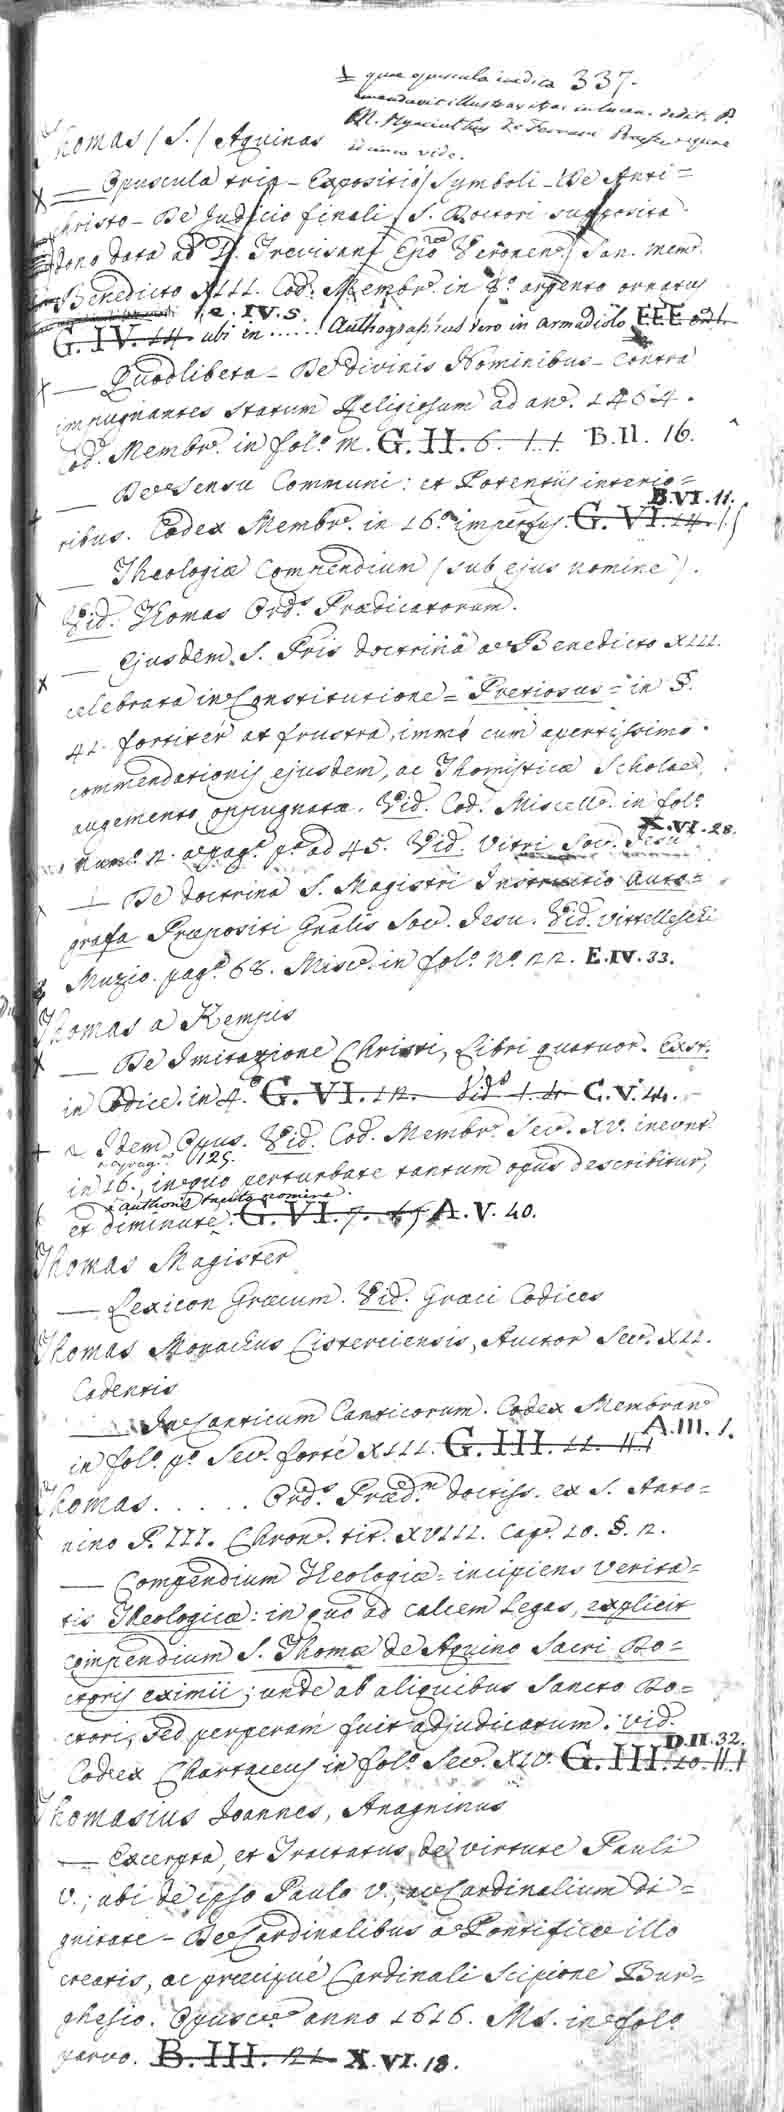 quae opuscula inedita 337.
emendavit illustravit ac in lucem dedit P.
M. Hyacinthus de Ferrari
vide.
Thomas (S.) Aquinas
— Opuscula tria - Expositio Symboli - De Anti=
christo - De Judicio finali, S. Doctori supposita
dono data ad D. Trevisani Epõ Veronen. San. mem.
Benedicto XIII. Cod. Membr. in 8.º argento ornatus
e. IV. 5.
G. IV. 14. ubi in ...... Authographus vero in armadiolo EEE
— Quodlibeta - De divinis Nominibus - Contra
impugnantes statum Religiosum ad an. 1464.
Cod. Membr. in fol.º m. G. II. 6. B. II. 16.
— De Sensu Communi: et Potentiis interio=
B. VI. 11.
ribus. Codex Membr. in 16.º imperfus. G. VI. 14.
— Theologiæ Compendium (sub ejus nomine).
Vid. Thomas Ord.s Prædicatorum.
— Ejusdem S. Pris doctrina a Benedicto XIII.
celebrata in Constitutione = Pretiosus = in §.
41. fortitér at frustra, immó cum apertissimo
commendationis ejusdem, ac Thomisticæ Scholæ
augemento oppugnata. Vid. Cod. Miscell. in fol.º
X. VI. 28.
num.º 12. a pag. p.ª ad 45. Vid. Vitri Soc. Jesu
— De doctrina S. Magistri Instructio Auto=
grafa Præpositi Gñalis Soc. Jesu. Vid. Vittelleschi
Muzio. pag. 68. Misc. in fol.º n.º 22. E. IV. 33.
Thomas a Kempis
— De Imitazione Christi, Libri quatuor. Exst.
in Codice in 4.º G. VI. 12. C. V. 44.
2 Idem Opus. Vid. Cod. Membr. Sec. XV. ineunt.
a pag. 125.
in 16., in quo perturbate tantum opus describitur,
a authoris tacito nomine.
et diminute. G. VI. 7. A. V. 40.
Thomas Magister
— Lexicon Græcum. Vid. Græci Codices
Thomas Monachus Cisterciensis, Auctor Sec. XII.
Cadentis
— In Canticum Canticorum. Codex Membran
A. III. 1.
in fol.º p.º Sec. forté XIII. G. III. 11.
Thomas ..... Ord.s Præd.m doctiss. ex S. Anto=
nino P. III. Chron. tit. XVIII. Cap. 10. §. 2.
— Compendium Theologiæ = incipiens Verita=
tis Theologicæ: in quo ad calcem legas, explicit
compendium S. Thomæ de Aquino Sacri Do=
ctoris eximii; unde ab aliquibus Sancto Do=
ctori, sed perperam fuit adjudicatum. Vid.
D. II. 32.
Codex Chartaceus in fol.º Sec. XIV. G. III. 10.
Thomasius Joannes, Anagninus
— Excerpta, et Tractatus de virtute Pauli
V.; ubi de ipso Paulo V., ac Cardinalium di=
gnitate - De Cardinalibus a Pontifice illo
creatis, ac præcipué Cardinali Scipione Bur=
ghesio. Opusc. anno 1616. MS. in fol.º
parvo. B. III. 21 X. VI. 18.